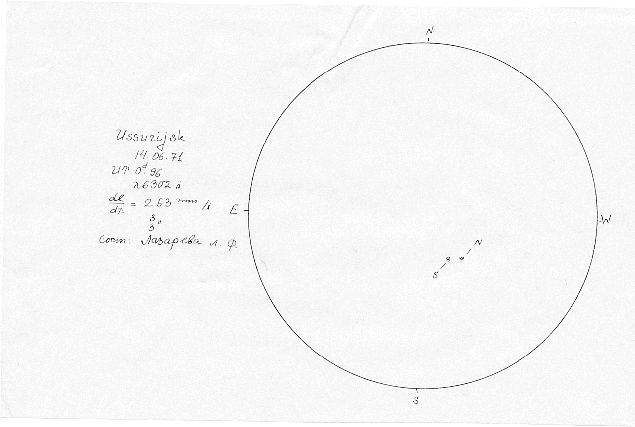 Ussurijsk
14.06.71
UT 0ᵈ.96
λ6302
dl/dλ = 2.53 mm/Å
Сост: Лазарева Л. Ф.
N
E
W
N
S
S